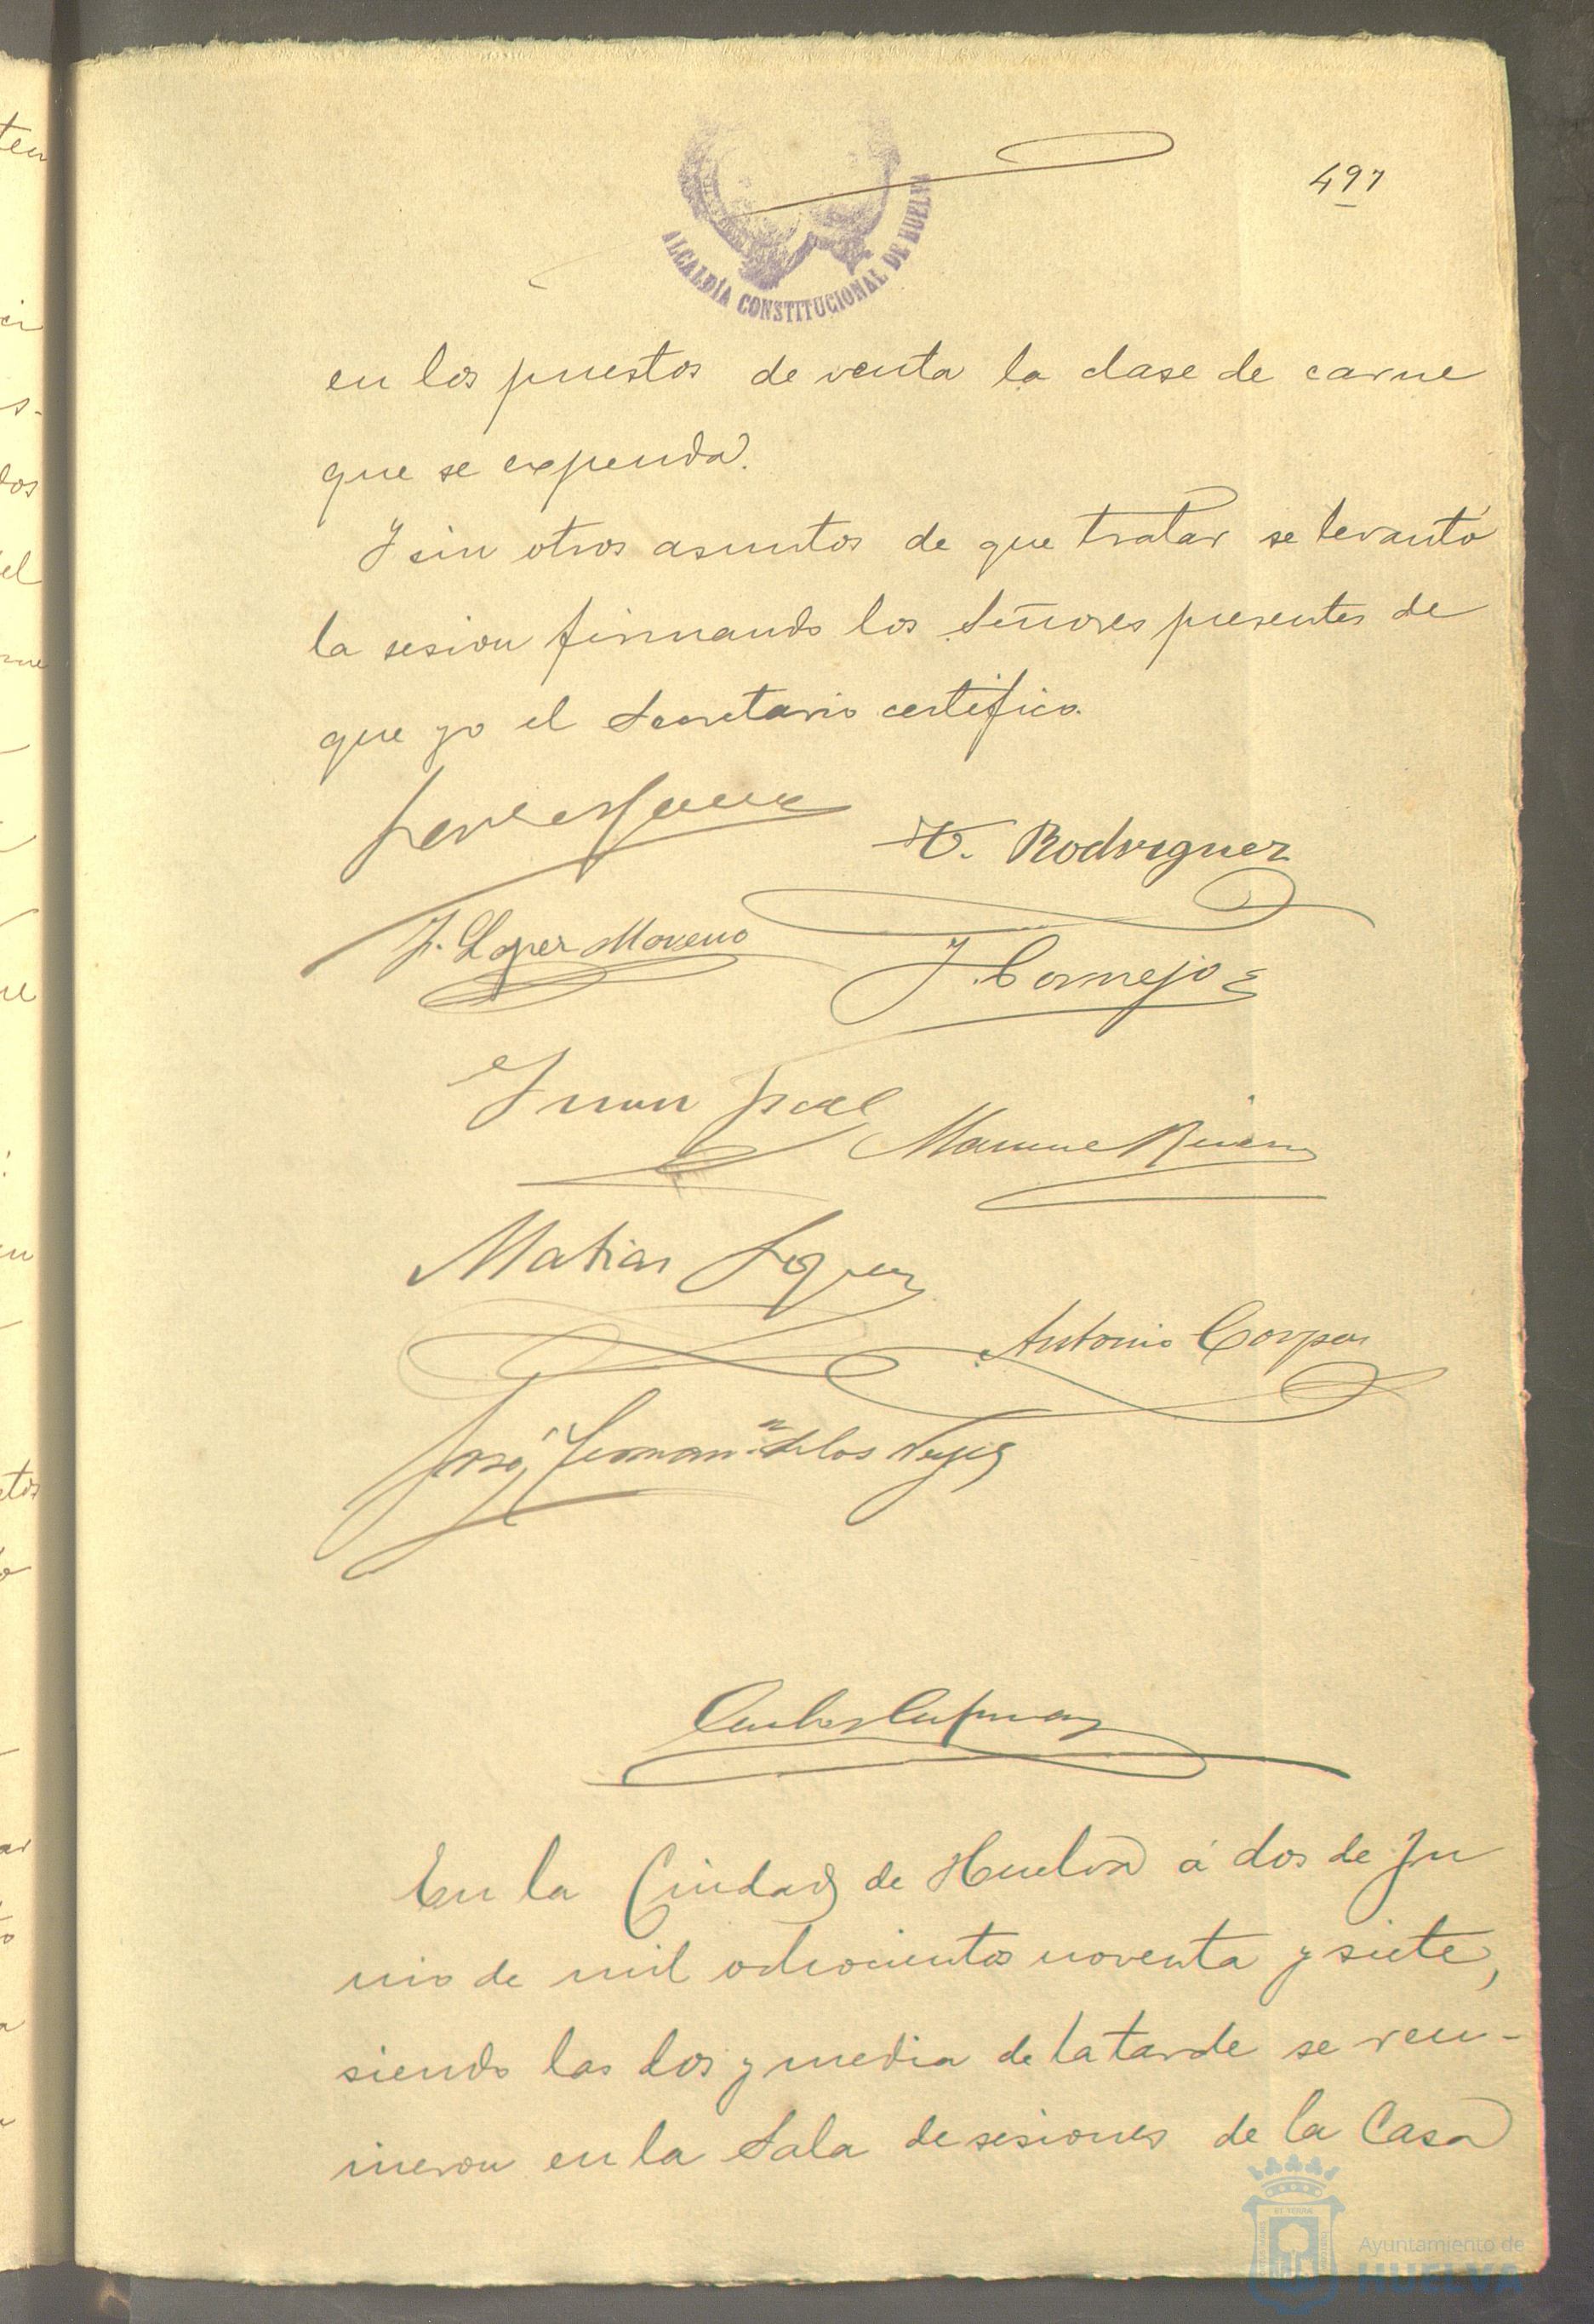 497
ALCALDÍA CONSTITUCIONAL DE HUELVA
en los puestos de venta la clase de carne
que se expenda.
Y sin otros asuntos de que tratar se levantó
la sesion firmando los Señores presentes de
que yo el Secretario certifico.
V. Rodriguez
J. Lopez Moreno
J. Cornejo
Juan
Manuel
Matias Lopez
Antonio Corpas
José de los Reyes
Carlos
En la Ciudad de Huelva á dos de Ju
nio de mil ochocientos noventa y siete,
siendo las dos y media de la tarde se reu-
nieron en la Sala de sesiones de la Casa
Ayuntamiento de
HUELVA